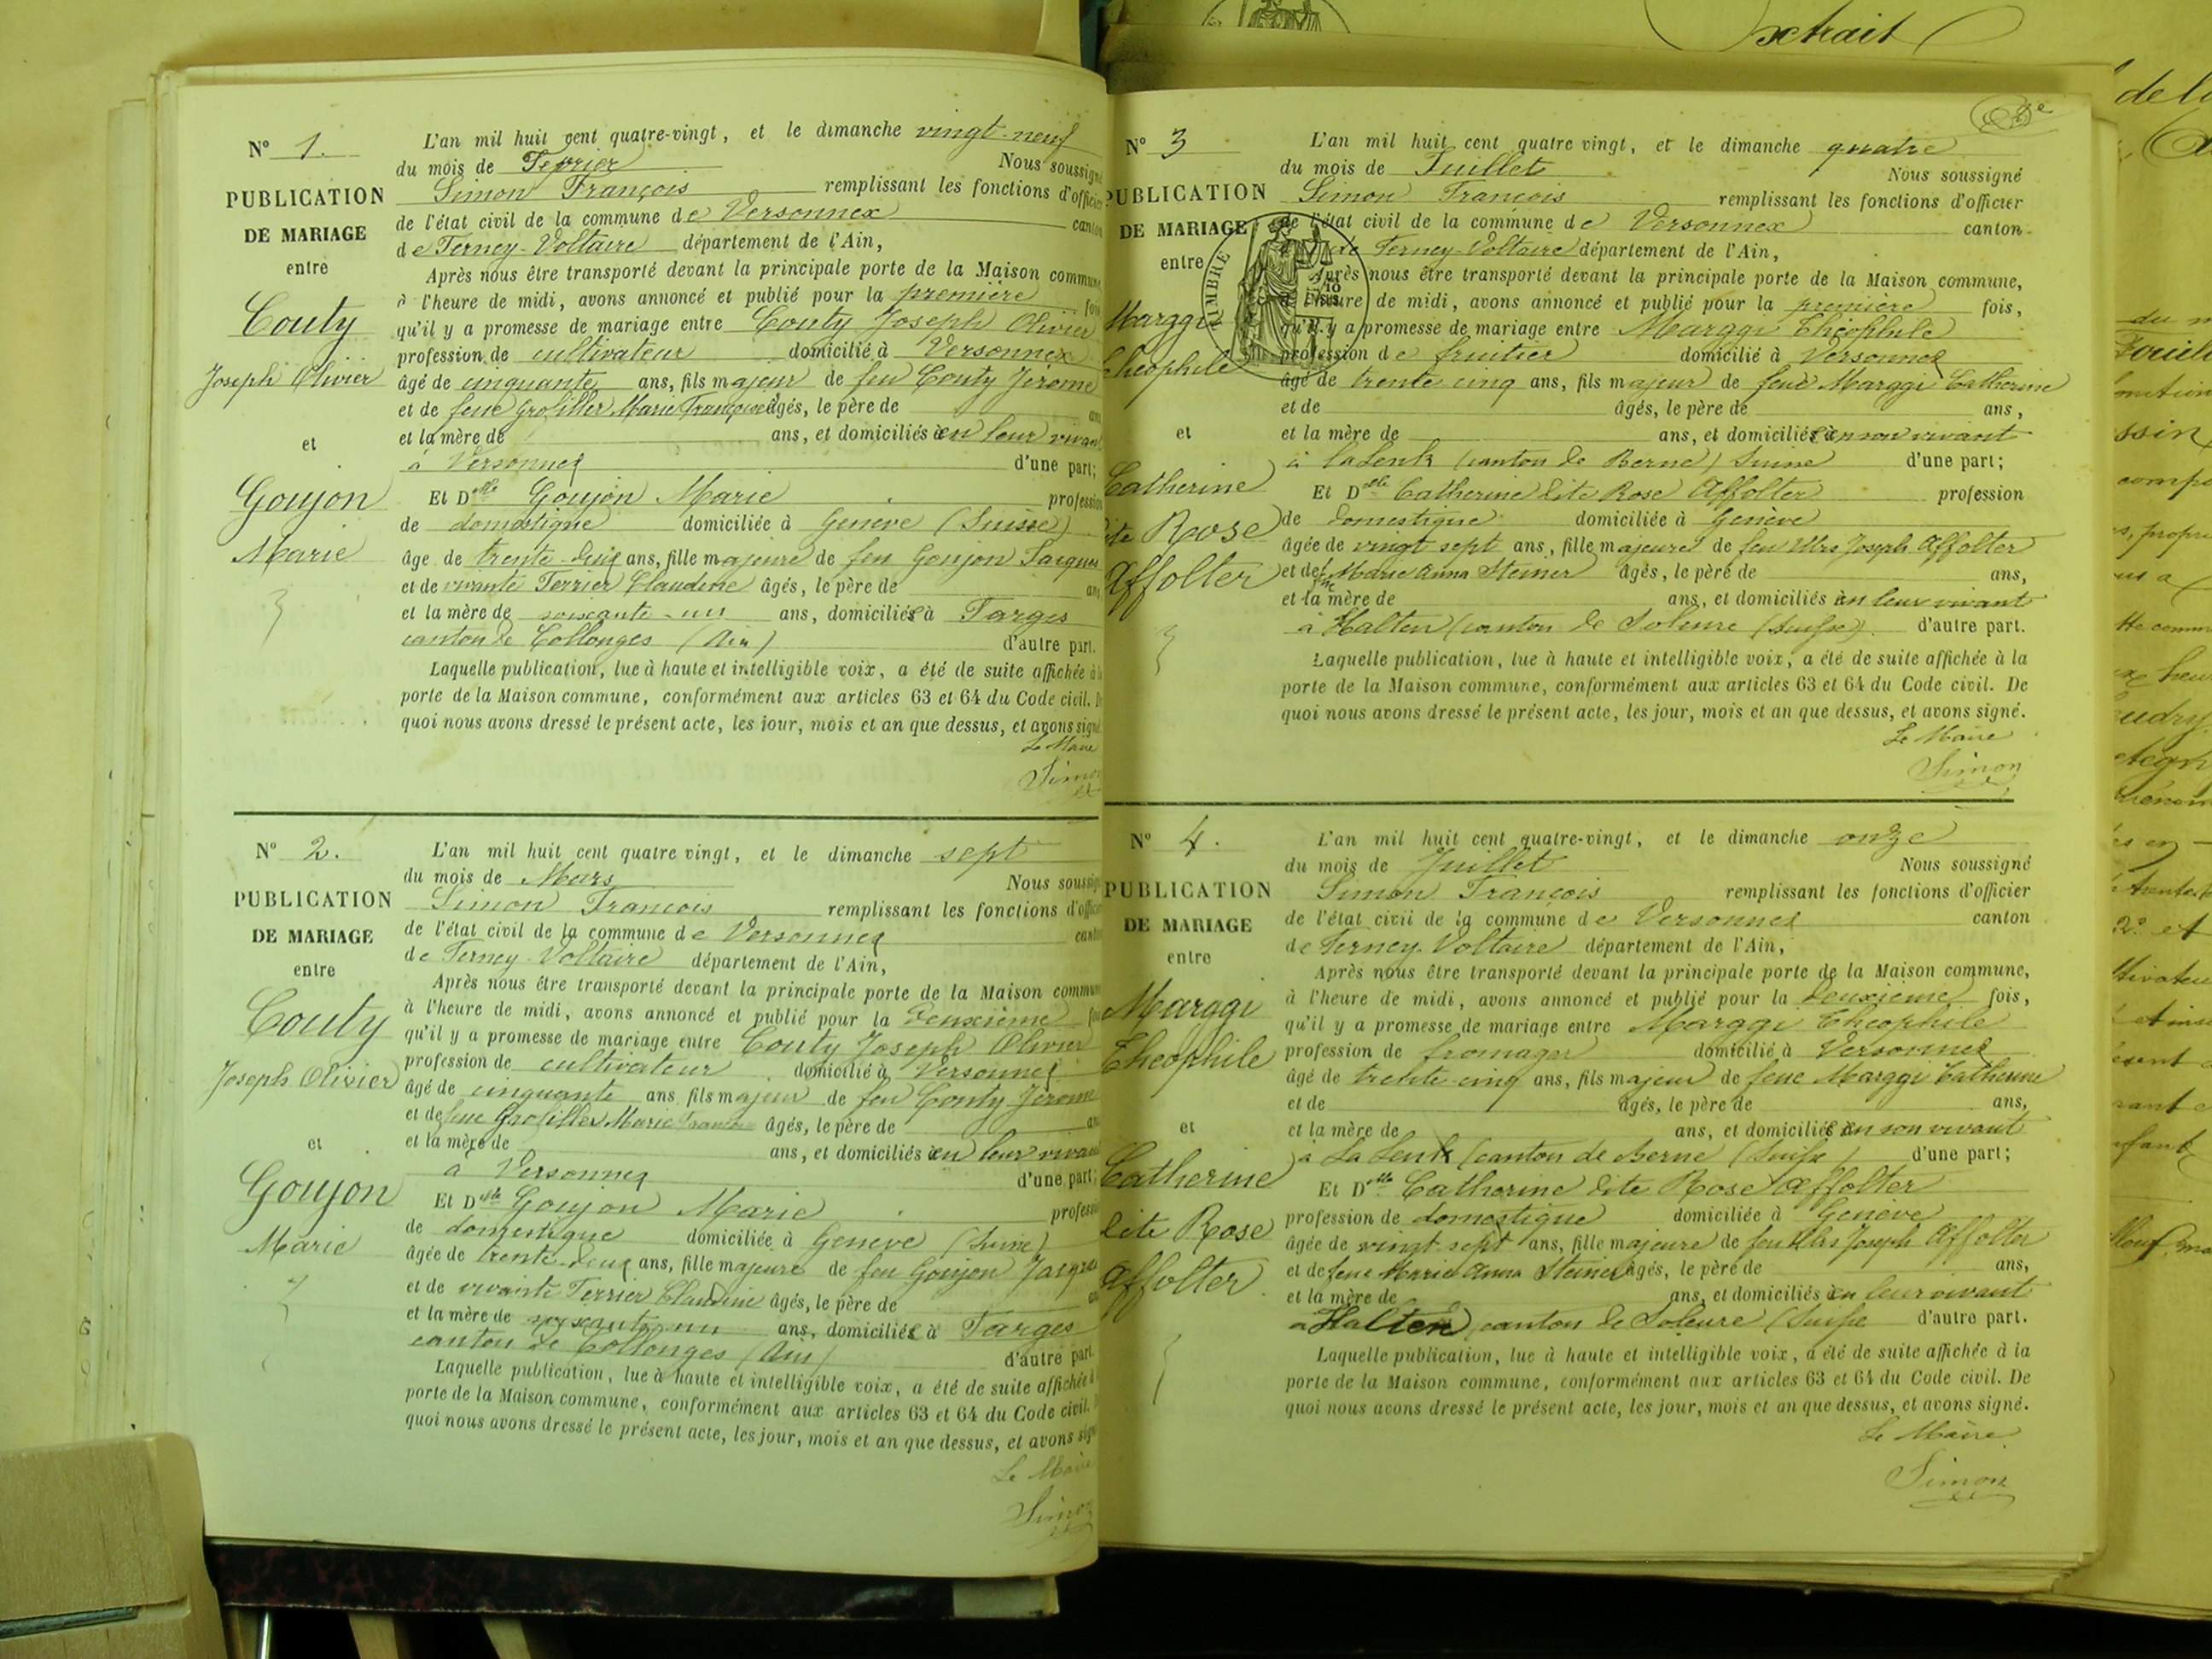 Nº 1.
PUBLICATION
DE MARIAGE
entre
Couty
Joseph Olivier
et
Goujon
Marie
L'an mil huit cent quatre-vingt, et le dimanche vingt-neuf
du mois de Fevrier Nous soussigné
Simon François remplissant les fonctions d'officier
de l'état civil de la commune de Versonnex canton
de Ferney-Voltaire département de l'Ain,
Après nous être transporté devant la principale porte de la Maison commune
à l'heure de midi, avons annoncé et publié pour la première fois
qu'il y a promesse de mariage entre Couty Joseph Olivier
profession de cultivateur domicilié à Versonnex
âgé de cinquante ans, fils majeur de feu Couty Jérome
et de feue Grosiller Marie Françoise âgés, le père de ans
et la mère de ans, et domiciliés en leur vivant
à Versonnex d'une part;
Et Dlle Goujon Marie profession
de domestique domiciliée à Genève (Suisse)
âge de trente-deux ans, fille majeure de feu Goujon Jacques
et de vivante Terrier Claudine âgés, le père de ans
et la mère de soixante-un ans, domiciliés à Farges
canton de Collonges (Ain) d'autre part.
Laquelle publication, lue à haute et intelligible voix, a été de suite affichée à la
porte de la Maison commune, conformément aux articles 63 et 64 du Code civil. De
quoi nous avons dressé le présent acte, les jour, mois et an que dessus, et avons signé
Le Maire
Simon
Nº 2.
PUBLICATION
DE MARIAGE
entre
Couty
Joseph Olivier
et
Goujon
Marie
L'an mil huit cent quatre vingt, et le dimanche sept
du mois de Mars Nous soussigné
Simon François remplissant les fonctions d'officier
de l'état civil de la commune de Versonnex canton
de Ferney-Voltaire département de l'Ain,
Après nous être transporté devant la principale porte de la Maison commune
à l'heure de midi, avons annoncé et publié pour la deuxième fois
qu'il y a promesse de mariage entre Couty Joseph Olivier
profession de cultivateur domicilié à Versonnex
âgé de cinquante ans fils majeur de feu Couty Jérome
et de feue Grosiller Marie Françoise âgés, le père de ans
et la mère de ans, et domiciliés en leur vivant
à Versonnex d'une part;
Et Dlle Goujon Marie profession
de domestique domiciliée à Genève (Suisse)
âgée de trente-deux ans, fille majeure de feu Goujon Jacques
et de vivante Terrier Claudine âgés, le père de ans
et la mère de soixante-un ans, domiciliés à Farges
canton de Collonges (Ain) d'autre part.
Laquelle publication, lue à haute et intelligible voix, a été de suite affichée à
porte de la Maison commune, conformément aux articles 63 et 64 du Code civil.
quoi nous avons dressé le présent acte, les jour, mois et an que dessus, et avons signé
Le Maire
Simon
Nº 3
PUBLICATION
DE MARIAGE
entre
Marggi
Théophile
et
Catherine
dite Rose
Affolter
TIMBRE
L'an mil huit cent quatre vingt, et le dimanche quatre
du mois de Juillet Nous soussigné
Simon François remplissant les fonctions d'officier
de l'état civil de la commune de Versonnex canton
de Ferney-Voltaire département de l'Ain,
Après nous être transporté devant la principale porte de la Maison commune,
à l'heure de midi, avons annoncé et publié pour la première fois,
qu'il y a promesse de mariage entre Marggi Théophile
profession de fruitier domicilié à Versonnex
âgé de trente cinq ans, fils majeur de feue Marggi Catherine
et de âgés, le père de ans,
et la mère de ans, et domiciliés en son vivant
à la Lenk (canton de Berne) Suisse d'une part;
Et Dlle Catherine dite Rose Affolter profession
de domestique domiciliée à Genève
âgée de vingt sept ans, fille majeure de feu Urs Joseph Affolter
et de fue Marie Anna Steiner âgés, le père de ans,
et la mère de ans, et domiciliés en leur vivant
à Halten (canton de Soleure (Suisse). d'autre part.
Laquelle publication, lue à haute et intelligible voix, a été de suite affichée à la
porte de la Maison commune, conformément aux articles 63 et 64 du Code civil. De
quoi nous avons dressé le présent acte, les jour, mois et an que dessus, et avons signé.
Le Maire
Simon
Nº 4.
PUBLICATION
DE MARIAGE
entre
Marggi
Théophile
et
Catherine
dite Rose
Affolter
L'an mil huit cent quatre-vingt, et le dimanche onze
du mois de Juillet Nous soussigné
Simon François remplissant les fonctions d'officier
de l'état civil de la commune de Versonnex canton
de Ferney-Voltaire département de l'Ain,
Après nous être transporté devant la principale porte de la Maison commune,
à l'heure de midi, avons annoncé et publié pour la deuxième fois,
qu'il y a promesse de mariage entre Marggi Théophile
profession de fromager domicilié à Versonnex
âgé de trente-cinq ans, fils majeur de feue Marggi Catherine
et de âgés, le père de ans,
et la mère de ans, et domiciliés en son vivant
à La Lenk (canton de Berne (Suisse) d'une part;
Et Dlle Catherine dite Rose Affolter
profession de domestique domiciliée à Genève
âgée de vingt-sept ans, fille majeure de feu Urs Joseph Affolter
et de feue Marie Anna Steiner âgés, le père de ans,
et la mère de ans, et domiciliés en leur vivant
à Halten, canton de Soleure (Suisse d'autre part.
Laquelle publication, lue à haute et intelligible voix, a été de suite affichée à la
porte de la Maison commune, conformément aux articles 63 et 64 du Code civil. De
quoi nous avons dressé le présent acte, les jour, mois et an que dessus, et avons signé.
Le Maire
Simon
Extrait